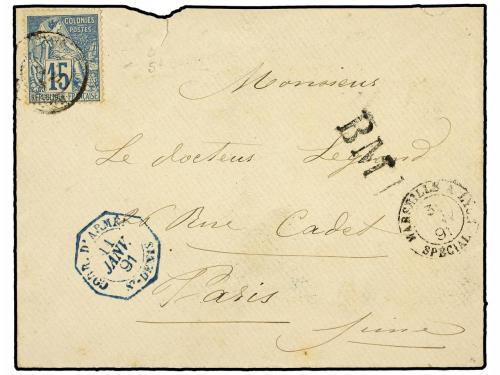 COLONIES
POSTES
15
RÉPUBLIQUE FRANÇAISE
Monsieur
BM
Le docteur Legrand
26 Rue Cadet
Paris
Seine
CORR. D'ARMÉES
1
JANV.
91
ST DENIS
MARSEILLE A LYON
91
SPÉCIAL